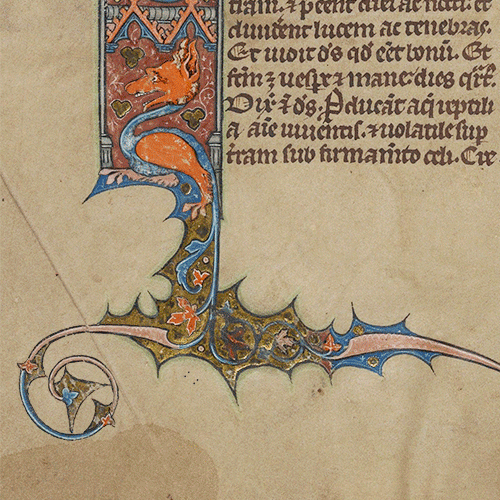 tram. ⁊ peent diei ac nocti. et
diuident lucem ac tenebras.
Et uidit d̄s qd̄ eēt bonū. Et
fcm̄ ē uesp̄e ⁊ mane dies qrt̄.
Dix̄ ē d̄s. Ꝓducāt aq̄ reptili
a aīe uiuentis. ⁊ uolatile sup
tram sub firmamīto celi. Cre